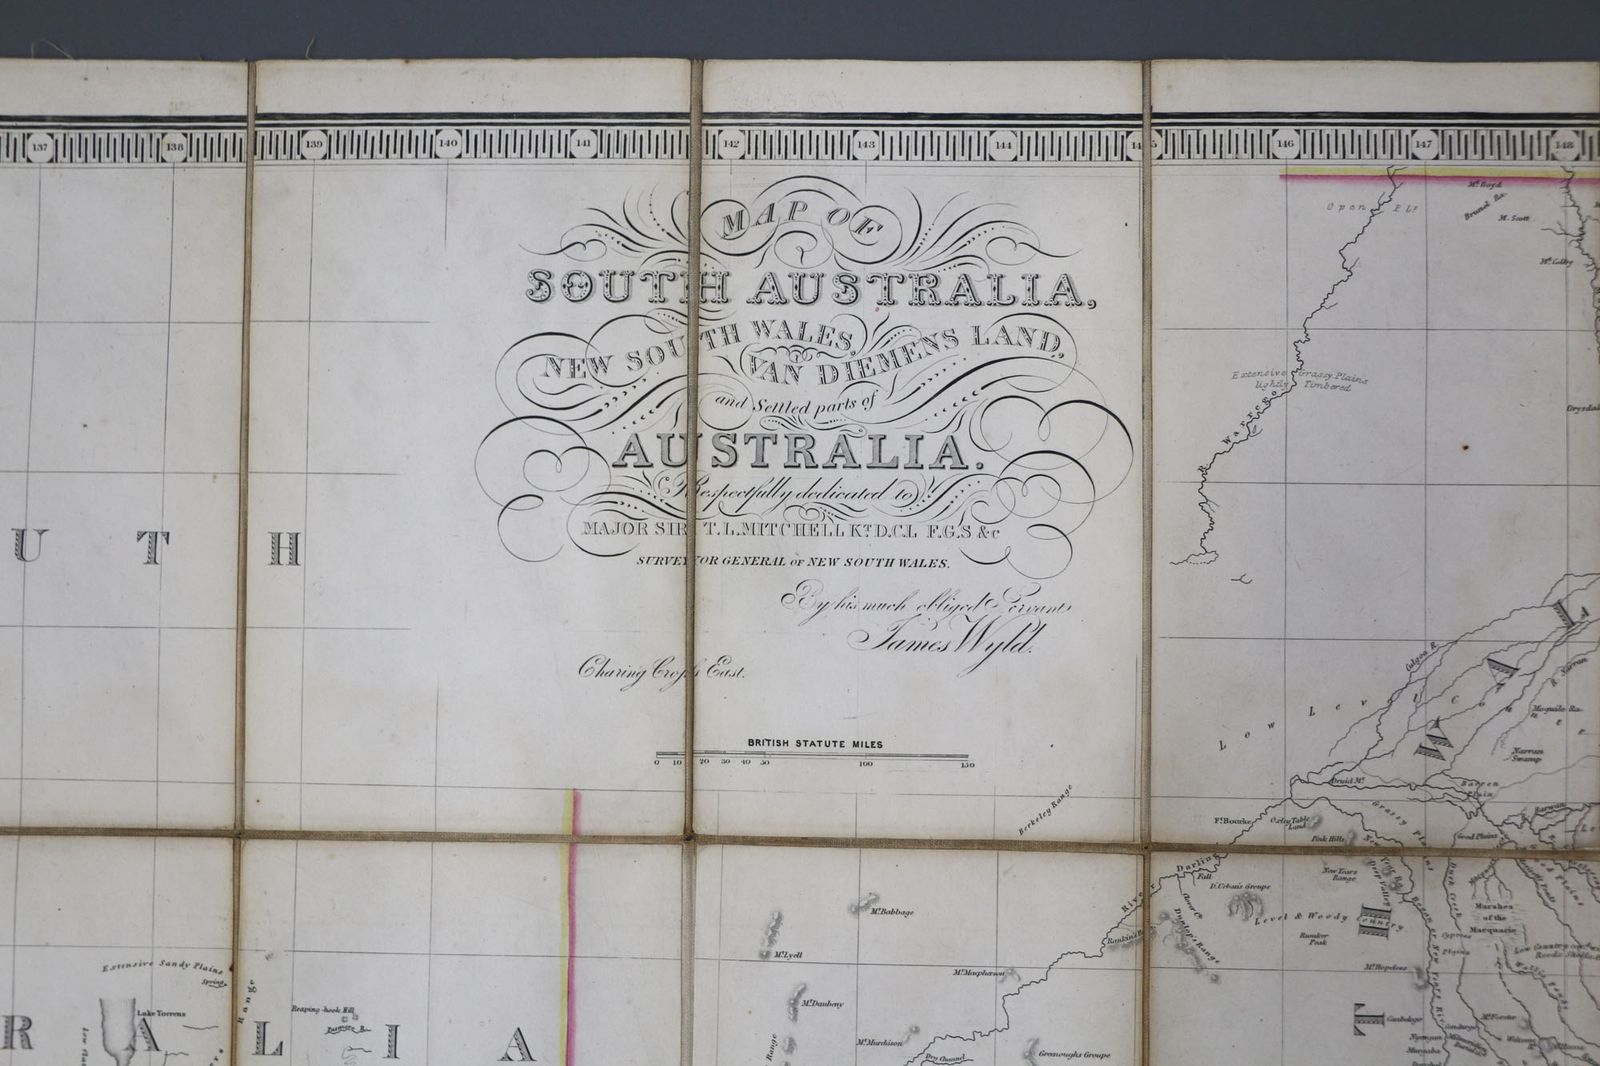 137 138 139 140 141 142 143 144 145 146 147 148
MAP OF
SOUTH AUSTRALIA,
NEW SOUTH WALES,
VAN DIEMENS LAND,
and Settled parts of
AUSTRALIA.
Respectfully dedicated to
MAJOR SIR T. L. MITCHELL KT. D.C.L F.G.S &c
SURVEYOR GENERAL OF NEW SOUTH WALES.
By his much obliged Servant
James Wyld.
Charing Cross East.
BRITISH STATUTE MILES
0 10 20 30 40 50 100 150
Berkeley Range
U T H
Mt. Boyd
Brunel Ra.
M. Scott
Open
Mt. Colby
Extensive Grassy Plains
lightly Timbered
Warrego
Culgoa R.
R. Narran
Low Level
Narran
Swamp
Druid Mt.
Barren
Plain
Barwan
Ft. Bourke
Oxley Table
Land
Pink Hills
Good Plains
Grassy
River Darling
Fall
D. Urban's Groupe
New Years
Range
Dunlop's Range
Level & Woody Country
Bunker
Peak
Marshes
of the
Macquarie
Cypress
Plains
Mt. Hopeless
Mt. Babbage
Mt. Lyell
Mt. Macpherson
Mt. Daubeny
Mt. Murchison
Range
Dry Channel
Greenoughs Groupe
Extensive Sandy Plains
Spring
Lake Torrens
Range
Reaping-hook Hill
R A L I A
Canbelego
Mt. Forster